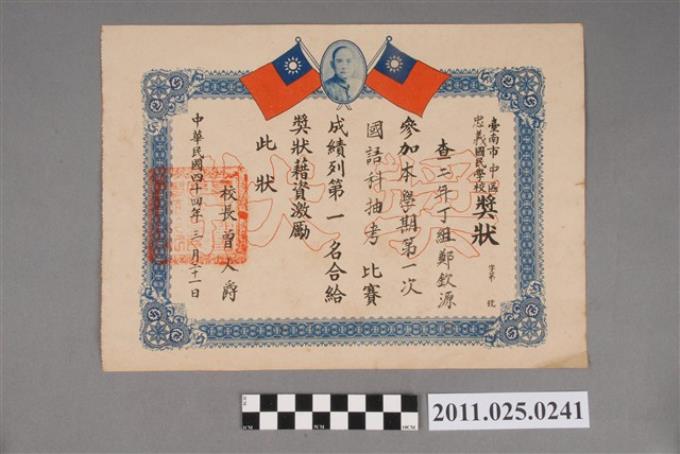 臺南市中區
忠義國民學校
獎狀
字第 號
查二年丁組鄭欽源
參加本學期第一次
國語科抽考比賽
成績列第一名合給
獎狀藉資激勵
此狀
校長曾人爵
中華民國四十四年三月二十一日
獎狀
2011.025.0241